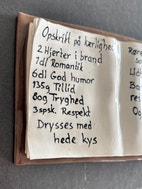 Opskrift på kærlighed
2 Hjerter i brand
1dl Romantik
6dl God humor
135g Tillid
80g Tryghed
3 spsk. Respekt
Drysses med
hede kys